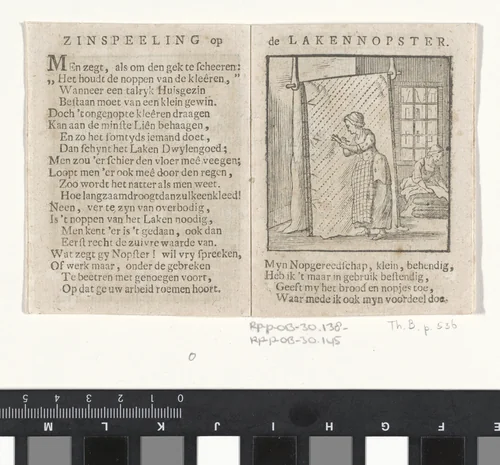 ZINSPEELING op
MEn zegt, als om den gek te scheeren:
„Het houdt de noppen van de kleêren, ”
Wanneer een talryk Huisgezin
Bestaan moet van een klein gewin.
Doch 't ongenopte kleêren draagen
Kan aan de minste Liên behaagen,
En zo het somtyds iemand doet,
Dan schynt het Laken Dwylengoed;
Men zou 'er schier den vloer meê veegen;
Loopt men 'er ook meê door den regen,
Zoo wordt het natter als men weet.
Hoe langzaam droogt dan zulk een kleed!
Neen, ver te zyn van overbodig,
Is 't noppen van het Laken noodig,
Men kent 'er is 't gedaan, ook dan
Eerst recht de zuivre waarde van.
Wat zegt gy Nopster! wil vry spreeken,
Of werk maar, onder de gebreken
Te beetren met genoegen voort,
Op dat ge uw arbeid roemen hoort.
de LAKENNOPSTER.
Myn Nopgereedschap, klein, behendig,
Heb ik 't maar in gebruik bestendig,
Geeft my het brood en nopjes toe,
Waar mede ik ook myn voordeel doe.
RP-P-OB-30.138-
RP-P-OB-30.145
Th. B. p. 536
0
5 4 3 2 1 0
M L K J I H G F E